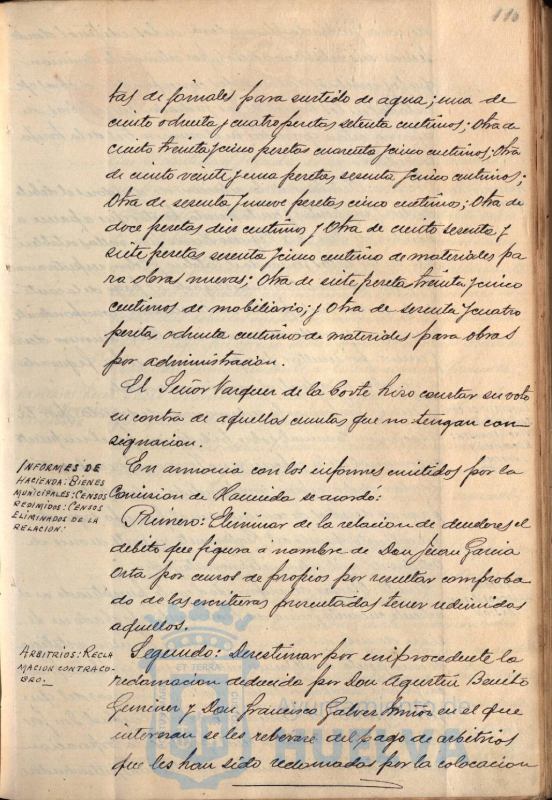 116
tas de jornales para surtido de agua; una de
ciento ochenta y cuatro pesetas setenta centimos; Otra de
ciento treinta y cinco pesetas cuarenta y cinco centimos; Otra
de ciento veinte y una pesetas sesenta y cinco centimos;
Otra de sesenta y nueve pesetas cinco centimos; Otra de
doce pesetas diez centimos y Otra de ciento sesenta y
siete pesetas sesenta y cinco centimos de materiales pa
ra obras nuevas; Otra de siete pesetas treinta y cinco
centimos de mobiliario; y Otra de sesenta y cuatro
pesetas ochenta centimos de materiales para obras
por administracion.
El Señor Vazquez de la Corte hizo constar su voto
en contra de aquellas cuentas que no tengan con
signacion.
INFORMES DE
HACIENDA: BIENES
MUNICIPALES: CENSOS
REDIMIDOS: CENSOS
ELIMINADOS DE LA
RELACION:
En armonia con los informes emitidos por la
Comision de Hacienda se acordó:
Primero: Eliminar de la relacion de deudores el
debito que figura á nombre de Don Juan Garcia
Orta por censos de propios por resultar comproba
do de las escrituras presentadas tener redimidos
aquellos.
ARBITRIOS: RECLA
MACION CONTRA CO-
BRO.
Segundo: Desestimar por improcedente la
reclamacion deducida por Don Agustin Benito
y Don Francisco Galvez en el que
interesan se les relevare del pago de arbitrios
que les han sido reclamados por la colocacion
ET TERRA
Ayuntamiento de
HUELVA